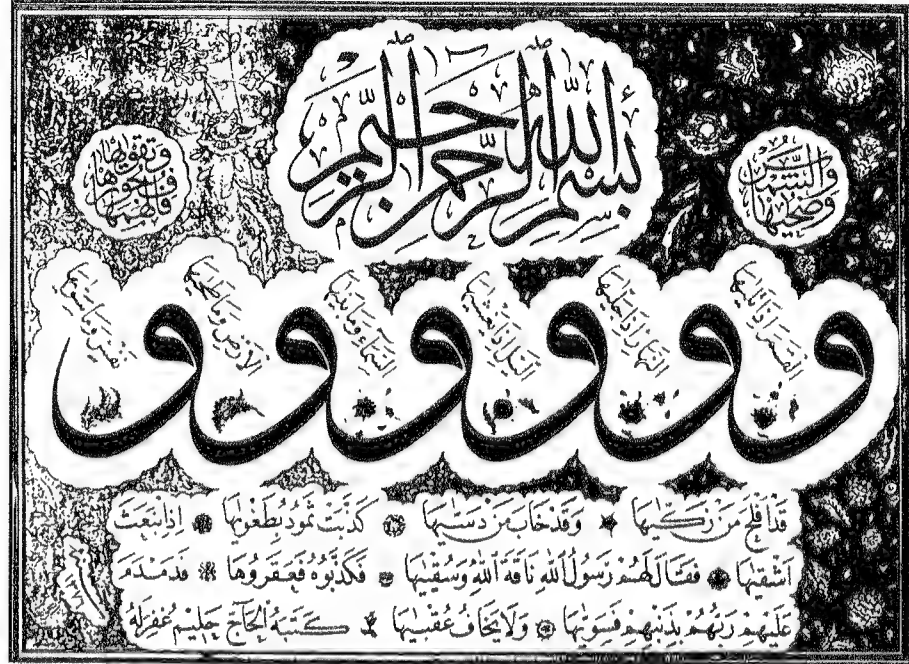 بسم الله الرحمن الرحيم
والشمس وضحيها
والقمر اذا تليها
والنهار اذا جليها
والليل اذا يغشيها
والسماء وما بنيها
والارض وما طحيها
ونفس وما سويها
فالهمها فجورها وتقويها
قد افلح من زكيها وقد خاب من دسيها كذبت ثمود بطغويها اذ انبعث
اشقيها فقال لهم رسول الله ناقة الله وسقيها فكذبوه فعقروها فدمدم
عليهم ربهم بذنبهم فسويها ولا يخاف عقبيها كتبه الحاج حليم غفرله